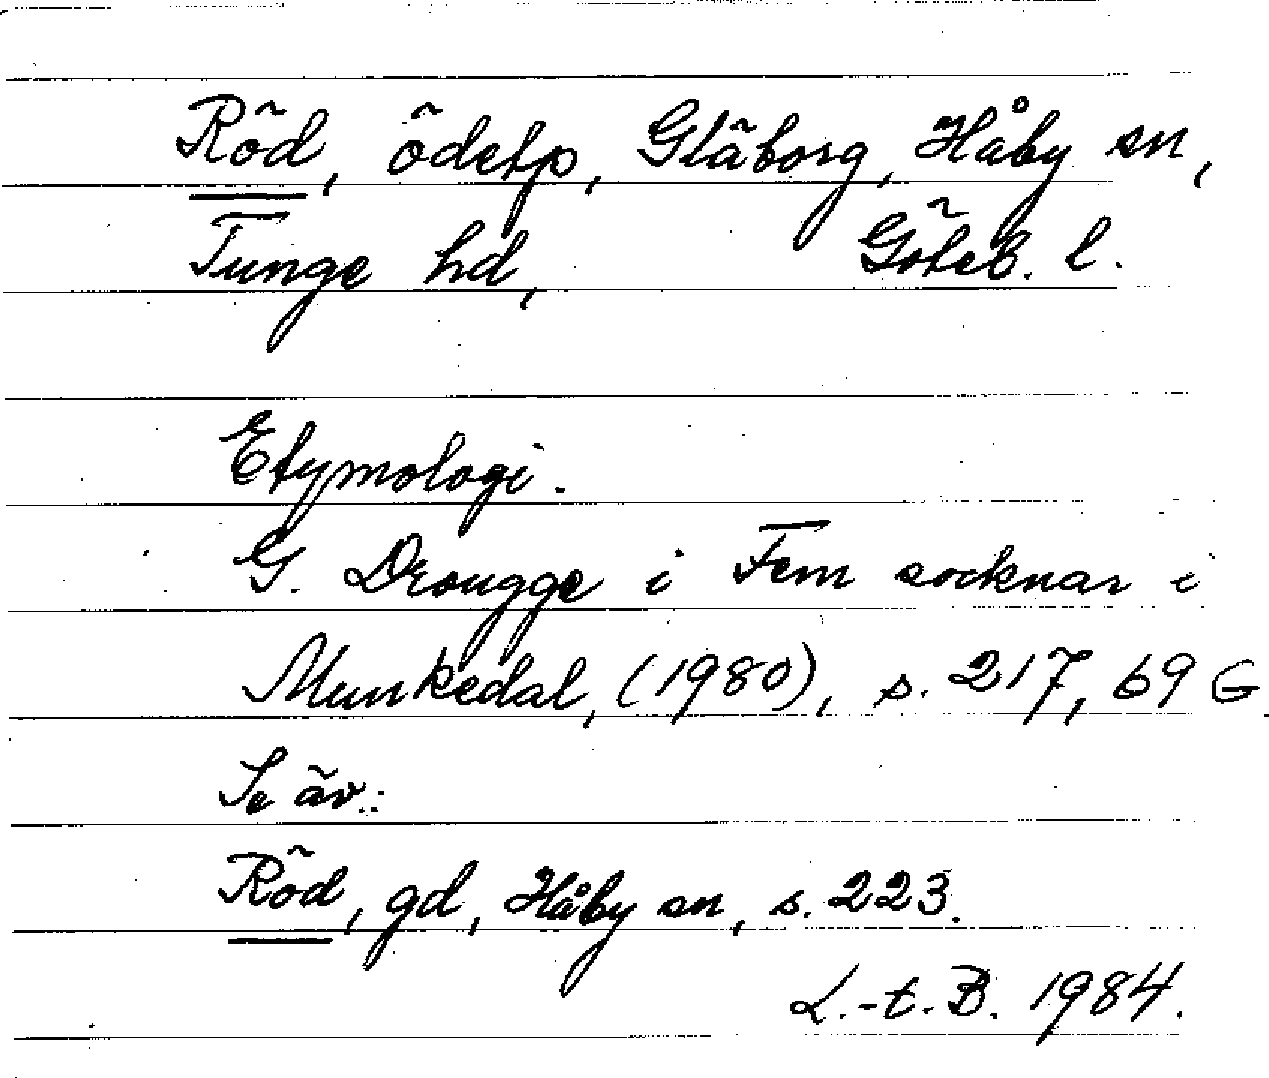 Röd, ödetp, Gläborg, Håby sn,
Tunge hd, Göteb. l.
Etymologi.
G. Drougge i Fem socknar i
Munkedal, (1980), s. 217, 69 G
Se äv.:
Röd, gd, Håby sn, s. 223.
L.-t. B. 1984.